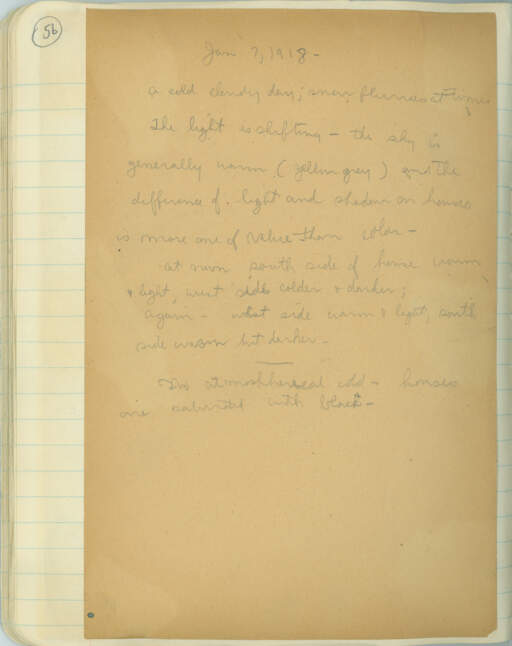 56
Jan 7, 1918 -
a cold cloudy day; snow flurries at times
The light is shifting - the sky is
generally warm (yellow grey) and the
difference of light and shadow on houses
is more one of value than color -
at noon south side of house warm
+ light, west side colder + darker;
again - west side warm + light, south
side warm but darker -
atmospherical cold - houses
are saturated with black -